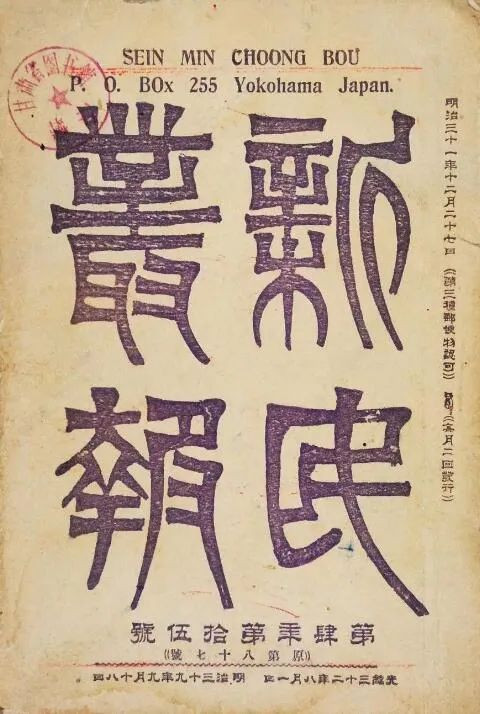 SEIN MIN CHOONG BOU
P. O. BOx 255 Yokohama Japan.
明治三十一年十二月二十七日（第三種郵便物認可）（每月二回發行）
新民
叢報
第肆年第拾伍號
（原第八十七號）
光緒三十二年八月一日 明治三十九年九月十八日
甘肃省图书馆